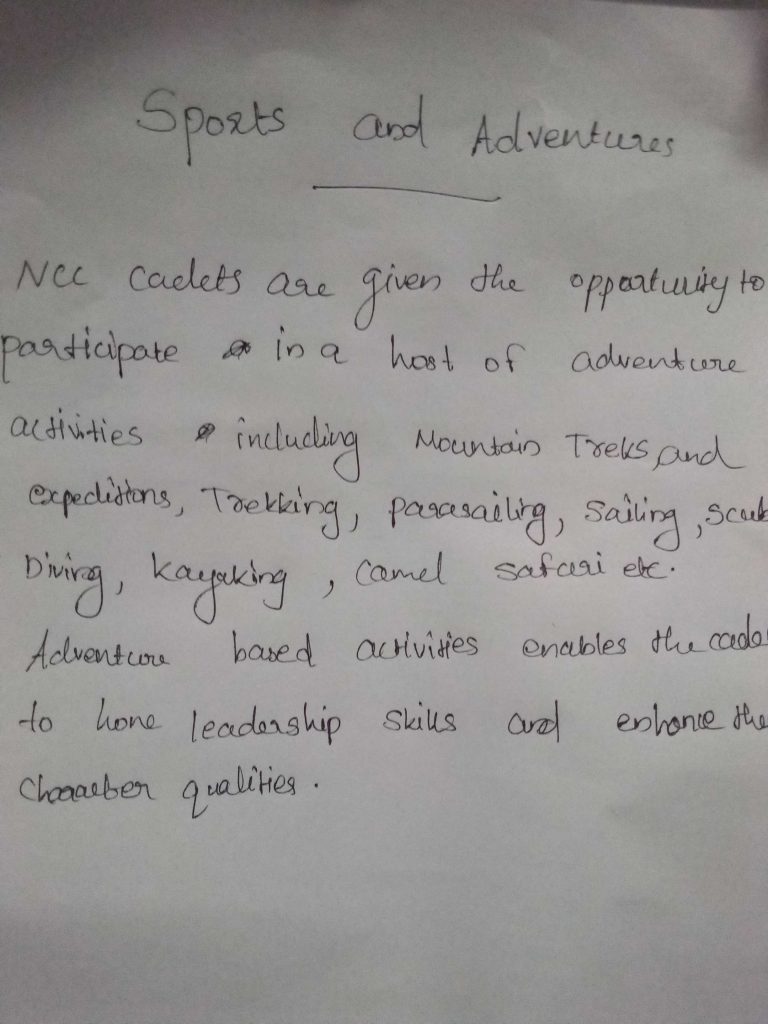 Sports and Adventures
NCC Cadets are given the opportunity to
participate in a host of adventure
activities including Mountain Treks, and
expeditions, Trekking, parasailing, Sailing, scub
Diving, kayaking, Camel safari etc.
Adventure based activities enables the cade
to hone leadership skills and enhance the
Character qualities.